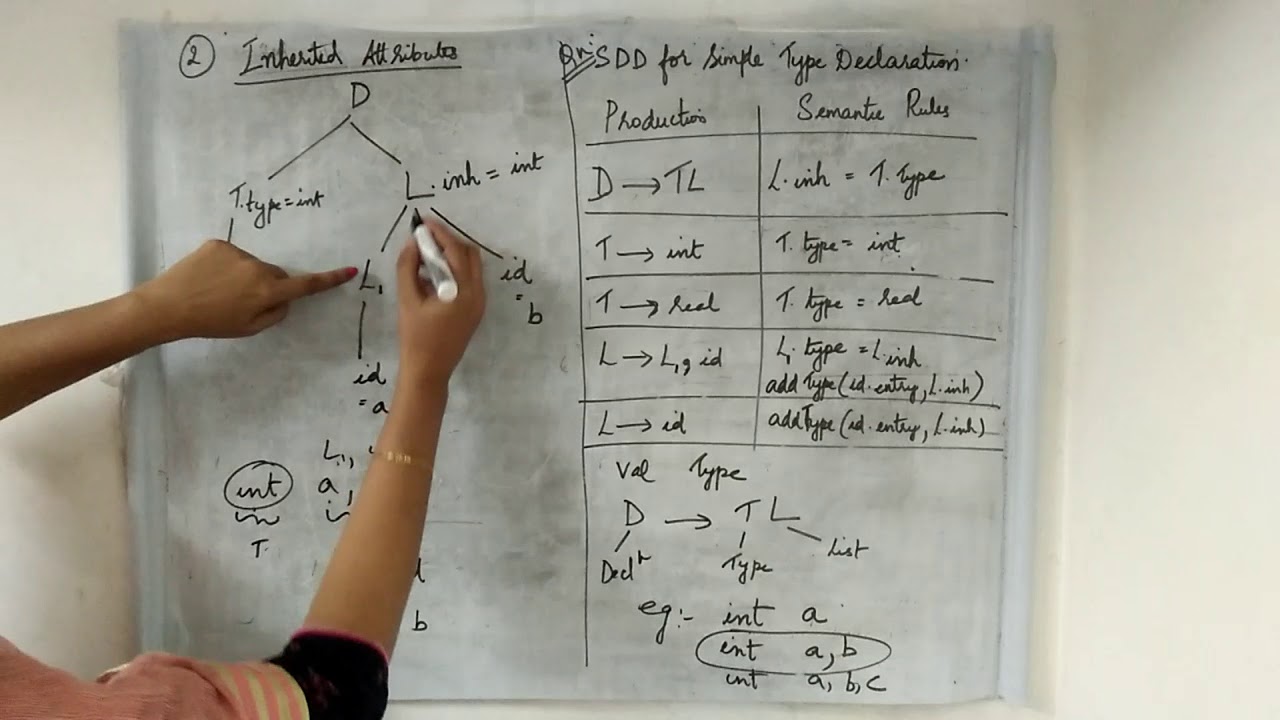 ② Inherited Attributes
D
T.type=int
L.inh = int
L₁
id
= b
id
= a
L₁,
int
a,
T.
b
Qn: SDD for Simple Type Declaration.
Production
Semantic Rules
D → TL
L.inh = T.type
T → int
T.type = int
T → real
T.type = real
L → L₁, id
L₁.type = L.inh
addType(id.entry, L.inh)
L → id
addType(id.entry, L.inh)
Val Type
D → T L
Declⁿ
Type
List
eg:- int a
int a,b
int a, b, c